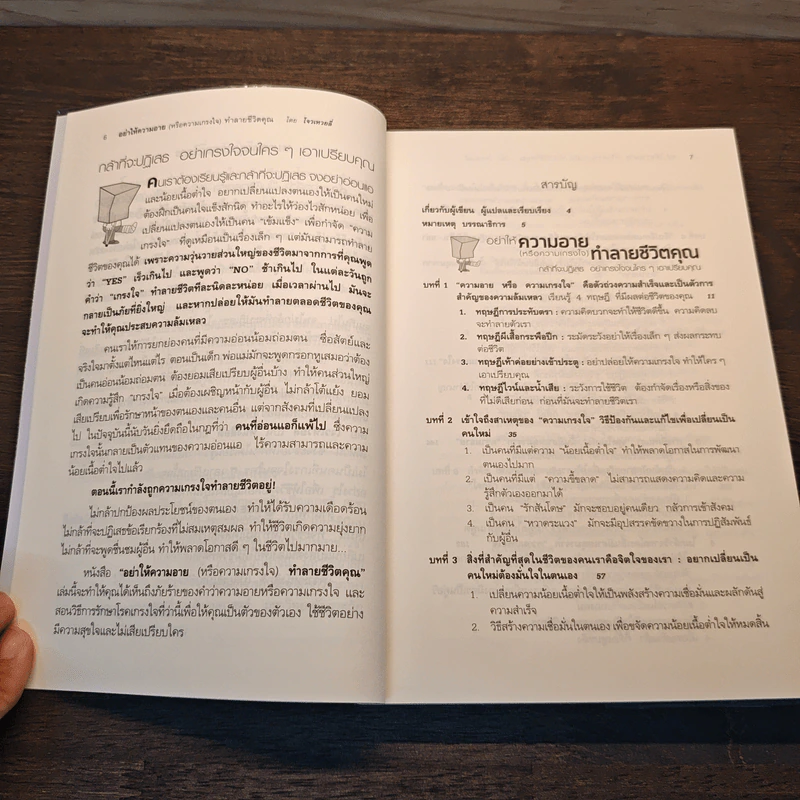 6 อย่าให้ความอาย (หรือความเกรงใจ) ทำลายชีวิตคุณ โดย โจวเหวยลี่
กล้าที่จะปฏิเสธ อย่าเกรงใจจนใคร ๆ เอาเปรียบคุณ
คนเราต้องเรียนรู้และกล้าที่จะปฏิเสธ จงอย่าอ่อนแอ
และน้อยเนื้อต่ำใจ อยากเปลี่ยนแปลงตนเองให้เป็นคนใหม่
ต้องฝึกเป็นคนใจแข็งสักนิด ทำอะไรให้ว่องไวสักหน่อย เพื่อ
เปลี่ยนแปลงตนเองให้เป็นคน "เข้มแข็ง" เพื่อกำจัด "ความ
เกรงใจ" ที่ดูเหมือนเป็นเรื่องเล็ก ๆ แต่มันสามารถทำลาย
ชีวิตของคุณได้ เพราะความวุ่นวายส่วนใหญ่ของชีวิตมาจากการที่คุณพูด
ว่า "YES" เร็วเกินไป และพูดว่า "NO" ช้าเกินไป ในแต่ละวันถูก
คำว่า "เกรงใจ" ทำลายชีวิตทีละนิดละหน่อย เมื่อเวลาผ่านไป มันจะ
กลายเป็นภัยที่ยิ่งใหญ่ และหากปล่อยให้มันทำลายตลอดชีวิตของคุณ
จะทำให้คุณประสบความล้มเหลว
คนเราให้การยกย่องคนที่มีความอ่อนน้อมถ่อมตน ซื่อสัตย์และ
จริงใจมาตั้งแต่ไหนแต่ไร ตอนเป็นเด็ก พ่อแม่มักจะพูดกรอกหูเสมอว่าต้อง
เป็นคนอ่อนน้อมถ่อมตน ต้องยอมเสียเปรียบผู้อื่นบ้าง ทำให้คนส่วนใหญ่
เกิดความรู้สึก "เกรงใจ" เมื่อต้องเผชิญหน้ากับผู้อื่น ไม่กล้าโต้แย้ง ยอม
เสียเปรียบเพื่อรักษาหน้าของตนเองและคนอื่น แต่จากสังคมที่เปลี่ยนแปลง
ไป ในปัจจุบันนี้นับวันยิ่งยึดถือในกฎที่ว่า คนที่อ่อนแอก็แพ้ไป ซึ่งความ
เกรงใจนั้นกลายเป็นตัวแทนของความอ่อนแอ ไร้ความสามารถและความ
น้อยเนื้อต่ำใจไปแล้ว
ตอนนี้เรากำลังถูกความเกรงใจทำลายชีวิตอยู่!
ไม่กล้าปกป้องผลประโยชน์ของตนเอง ทำให้ได้รับความเดือดร้อน
ไม่กล้าที่จะปฏิเสธข้อเรียกร้องที่ไม่สมเหตุสมผล ทำให้ชีวิตเกิดความยุ่งยาก
ไม่กล้าที่จะพูดชื่นชมผู้อื่น ทำให้พลาดโอกาสดี ๆ ในชีวิตไปมากมาย...
หนังสือ "อย่าให้ความอาย (หรือความเกรงใจ) ทำลายชีวิตคุณ"
เล่มนี้จะทำให้คุณได้เห็นถึงภัยร้ายของคำว่าความอายหรือความเกรงใจ และ
สอนวิธีการรักษาโรคเกรงใจที่ว่านี้เพื่อให้คุณเป็นตัวของตัวเอง ใช้ชีวิตอย่าง
มีความสุขใจและไม่เสียเปรียบใคร
7
สารบัญ
เกี่ยวกับผู้เขียน ผู้แปลและเรียบเรียง 4
หมายเหตุ บรรณาธิการ 5
อย่าให้ ความอาย
(หรือความเกรงใจ) ทำลายชีวิตคุณ
กล้าที่จะปฏิเสธ อย่าเกรงใจจนใคร ๆ เอาเปรียบคุณ
บทที่ 1 "ความอาย หรือ ความเกรงใจ" คือตัวถ่วงความสำเร็จและเป็นตัวการ
สำคัญของความล้มเหลว เรียนรู้ 4 ทฤษฎี ที่มีผลต่อชีวิตของคุณ 11
1. ทฤษฎีการประทับตรา : ความคิดบวกจะทำให้ชีวิตดีขึ้น ความคิดลบ
จะทำลายตัวเรา
2. ทฤษฎีผีเสื้อกระพือปีก : ระมัดระวังอย่าให้เรื่องเล็ก ๆ ส่งผลกระทบ
ต่อชีวิต
3. ทฤษฎีเท้าค่อยย่างเข้าประตู : อย่าปล่อยให้ความเกรงใจ ทำให้ใคร ๆ
เอาเปรียบคุณ
4. ทฤษฎีไวน์และน้ำเสีย : ระวังการใช้ชีวิต ต้องกำจัดเรื่องหรือสิ่งของ
ที่ไม่ดีเสียก่อน ก่อนที่มันจะทำลายชีวิตเรา
บทที่ 2 เข้าใจถึงสาเหตุของ "ความเกรงใจ" วิธีป้องกันและแก้ไขเพื่อเปลี่ยนเป็น
คนใหม่ 35
1. เป็นคนที่มีแต่ความ "น้อยเนื้อต่ำใจ" ทำให้พลาดโอกาสในการพัฒนา
ตนเองไปมาก
2. เป็นคนที่มีแต่ "ความขี้ขลาด" ไม่สามารถแสดงความคิดและความ
รู้สึกตัวเองออกมาได้
3. เป็นคน "รักสันโดษ" มักจะชอบอยู่คนเดียว กลัวการเข้าสังคม
4. เป็นคน "หวาดระแวง" มักจะมีอุปสรรคขัดขวางในการปฏิสัมพันธ์
กับผู้อื่น
บทที่ 3 สิ่งที่สำคัญที่สุดในชีวิตของคนเราคือจิตใจของเรา : อยากเปลี่ยนเป็น
คนใหม่ต้องมั่นใจในตนเอง 57
1. เปลี่ยนความน้อยเนื้อต่ำใจให้เป็นพลังสร้างความเชื่อมั่นและผลักดันสู่
ความสำเร็จ
2. วิธีสร้างความเชื่อมั่นในตนเอง เพื่อขจัดความน้อยเนื้อต่ำใจให้หมดสิ้น